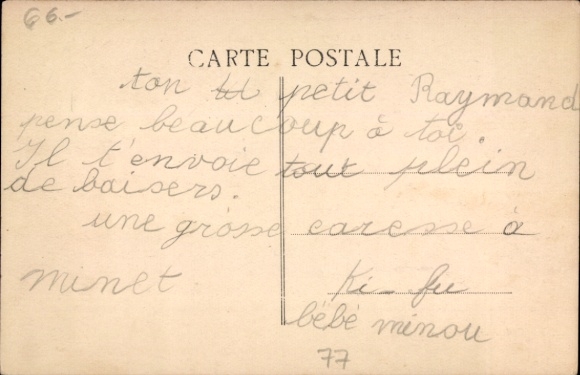 66.-
CARTE POSTALE
ton petit Raymond
pense beaucoup à toi.
Il t'envoie tout plein
de baisers.
une grosse caresse à
minet Ki-fu
bébé minou
77